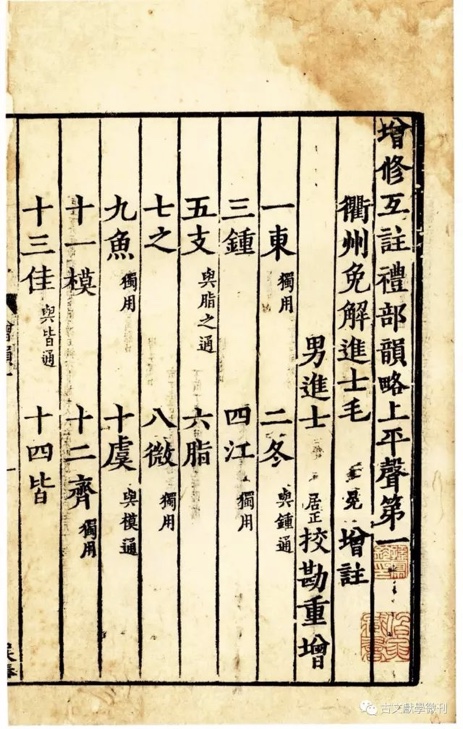 增修互註禮部韻略上平聲第一
衢州免解進士毛 晃 增註
男進士 居正 挍勘重增
一東 獨用 二冬 與鍾通
三鍾 四江 獨用
五支 與脂之通 六脂
七之 八微 獨用
九魚 獨用 十虞 與模通
十一模 十二齊 獨用
十三佳 與皆通 十四皆
古文獻學微刊